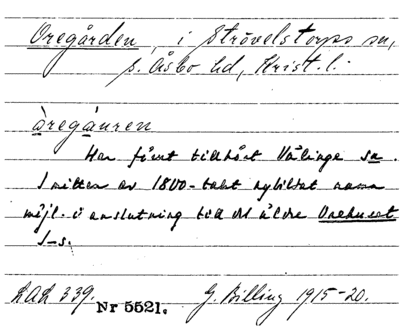 Oregården, i Strövelstorps sn,
S. Åsbo hd, Krist. l.
òregáuren
Har förut tillhört Välinge sn.
I mitten av 1800-talet nybildat namn
möjl. i anslutning till det äldre Orehuset
I-s.
LAL 339. Nr 5521. G. Billing 1915-20.